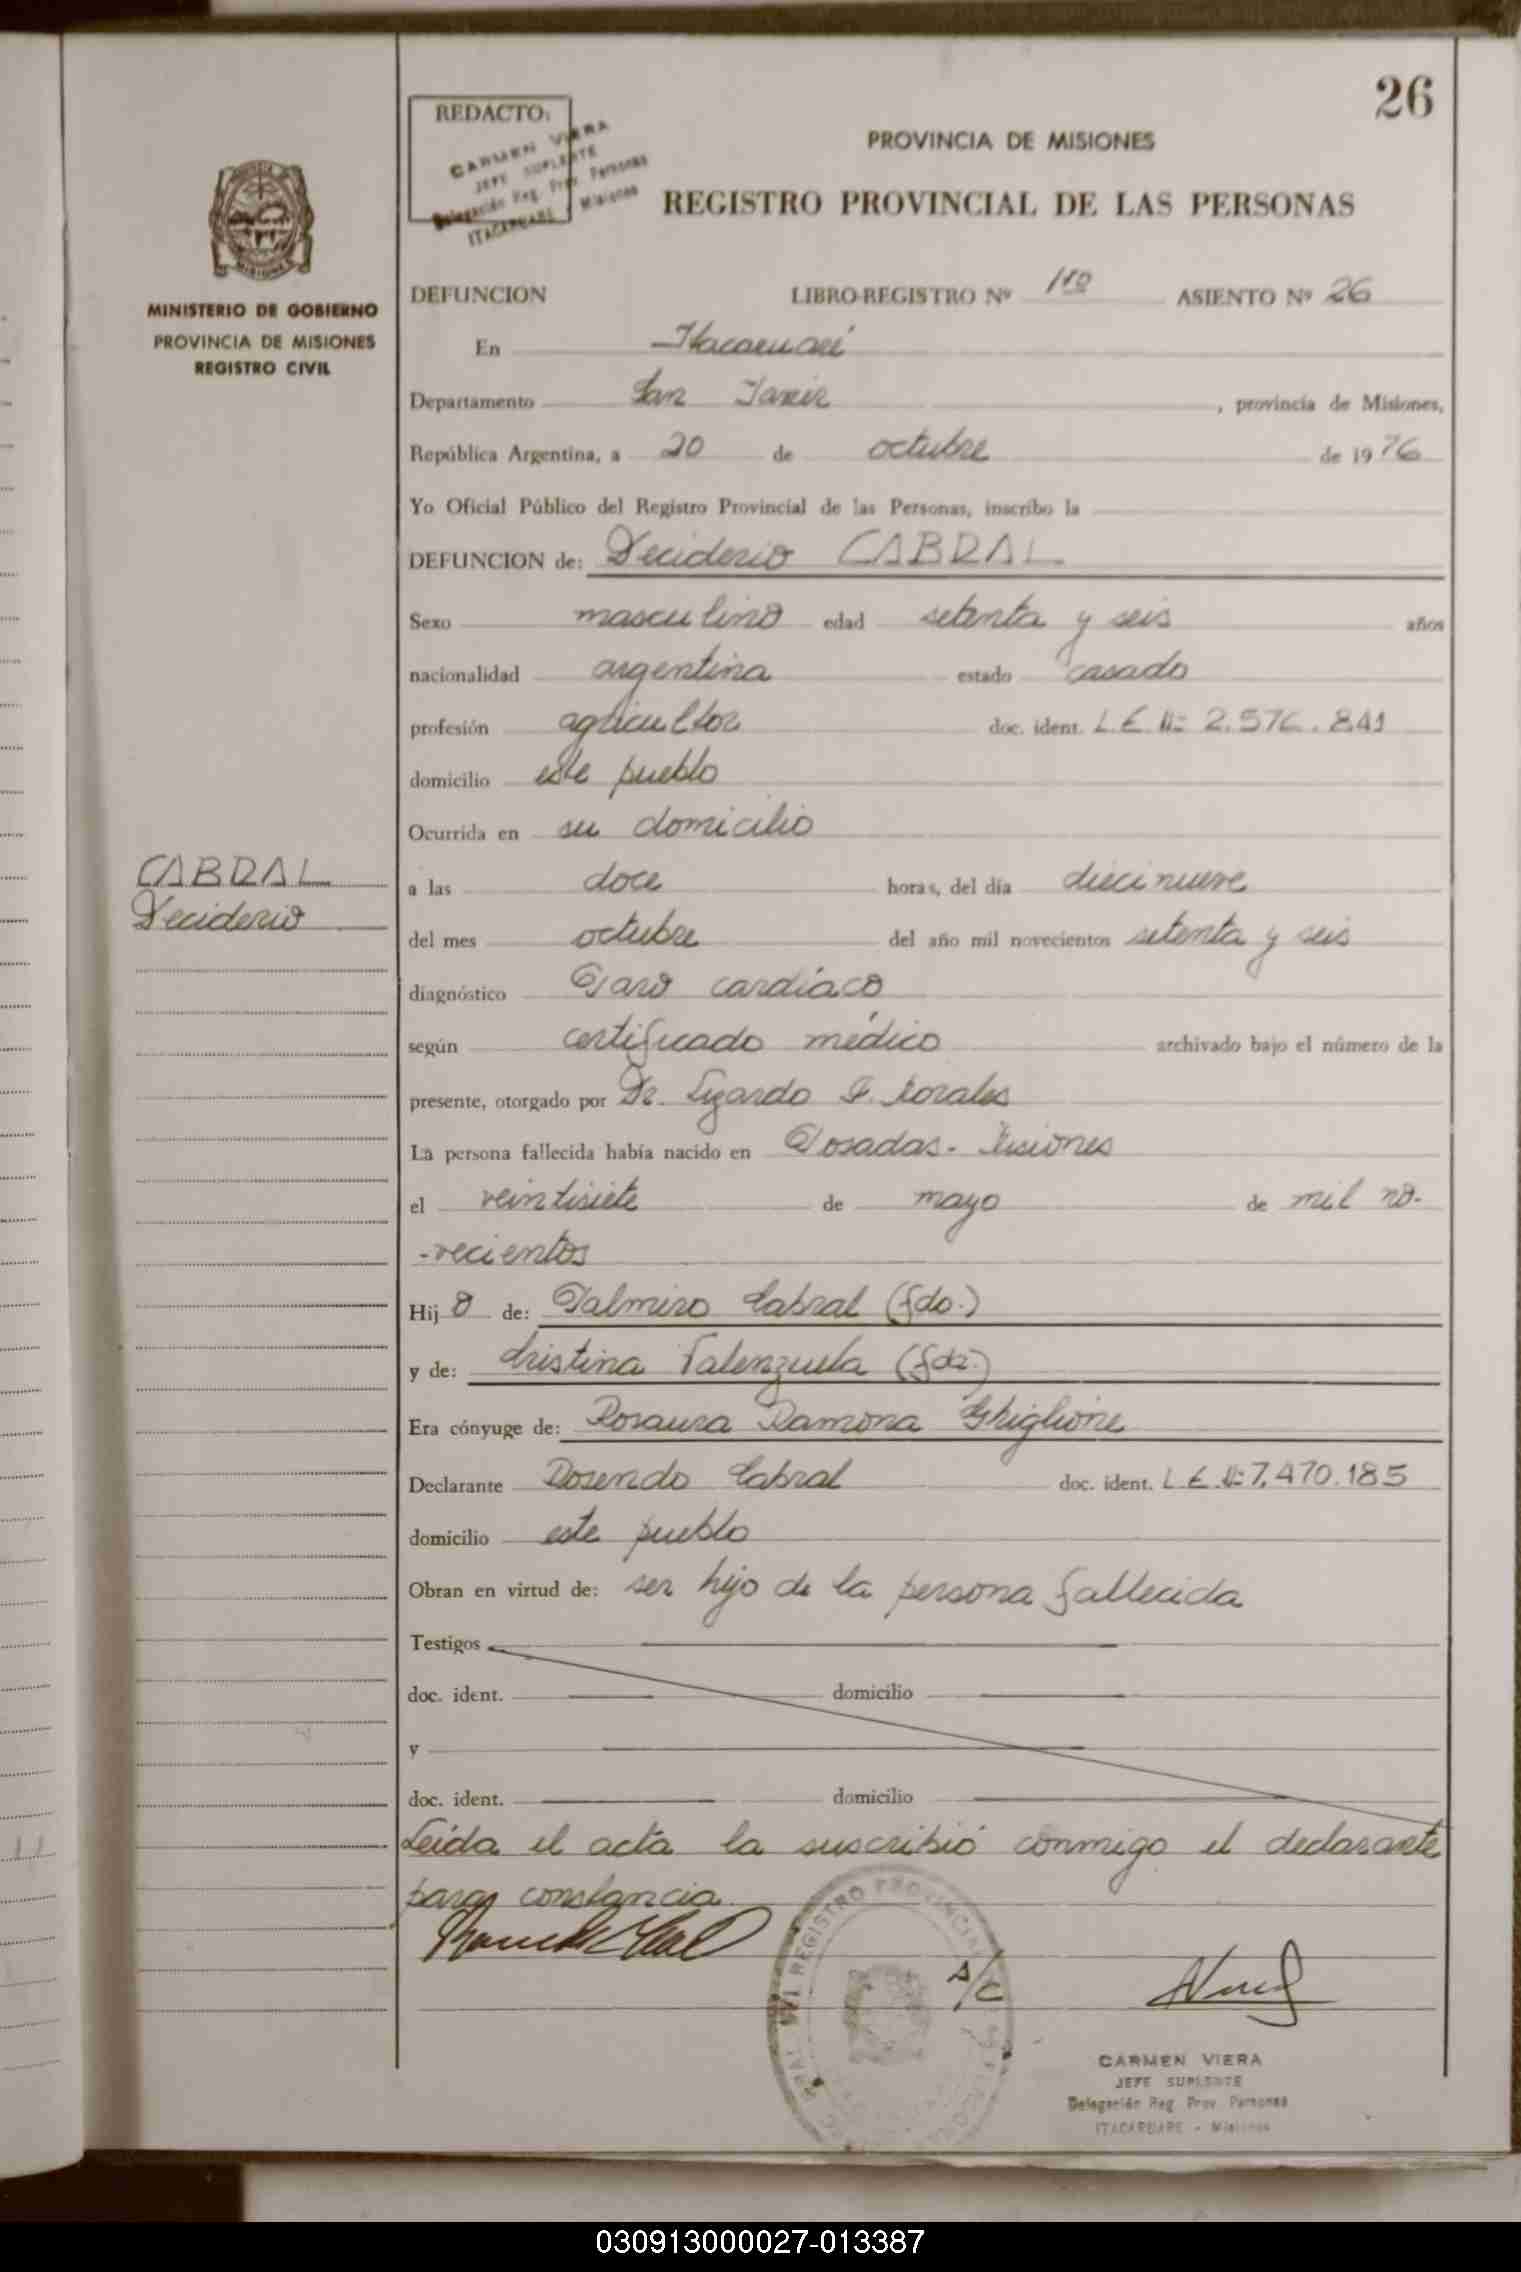 26
REDACTO:
CARMEN VIERA
JEFE SUPLENTE
Delegación Reg. Prov. Personas
ITACARUARE Misiones
PROVINCIA DE MISIONES
REGISTRO PROVINCIAL DE LAS PERSONAS
MINISTERIO DE GOBIERNO
PROVINCIA DE MISIONES
REGISTRO CIVIL
DEFUNCION LIBRO-REGISTRO Nº 1ro ASIENTO Nº 26
En Itacaruaré
Departamento San Javier, provincia de Misiones,
República Argentina, a 20 de octubre de 1976
Yo Oficial Público del Registro Provincial de las Personas, inscribo la
DEFUNCION de: Deciderio CABRAL
Sexo masculino edad setenta y seis años
nacionalidad argentina estado casado
profesión agricultor doc. ident. L.E. Nº 2.576.841
domicilio este pueblo
Ocurrida en su domicilio
CABRAL
Deciderio
a las doce horas, del día diecinueve
del mes octubre del año mil novecientos setenta y seis
diagnóstico Paro cardíaco
según certificado médico archivado bajo el número de la
presente, otorgado por Dr. Lizardo F. Morales
La persona fallecida había nacido en Posadas - Misiones
el veintisiete de mayo de mil no-
-vecientos
Hijo de: Palmiro Cabral (fdo.)
y de: Cristina Valenzuela (fda.)
Era cónyuge de: Rosaura Ramona Ghiglione
Declarante Rosendo Cabral doc. ident. L.E. Nº 7.470.185
domicilio este pueblo
Obran en virtud de: ser hijo de la persona fallecida
Testigos
doc. ident. domicilio
y
doc. ident. domicilio
Leída el acta la suscribió conmigo el declarante
para constancia
A/C
REGISTRO PROVINCIAL
CARMEN VIERA
JEFE SUPLENTE
Delegación Reg. Prov. Personas
ITACARUARE - Misiones
030913000027-013387